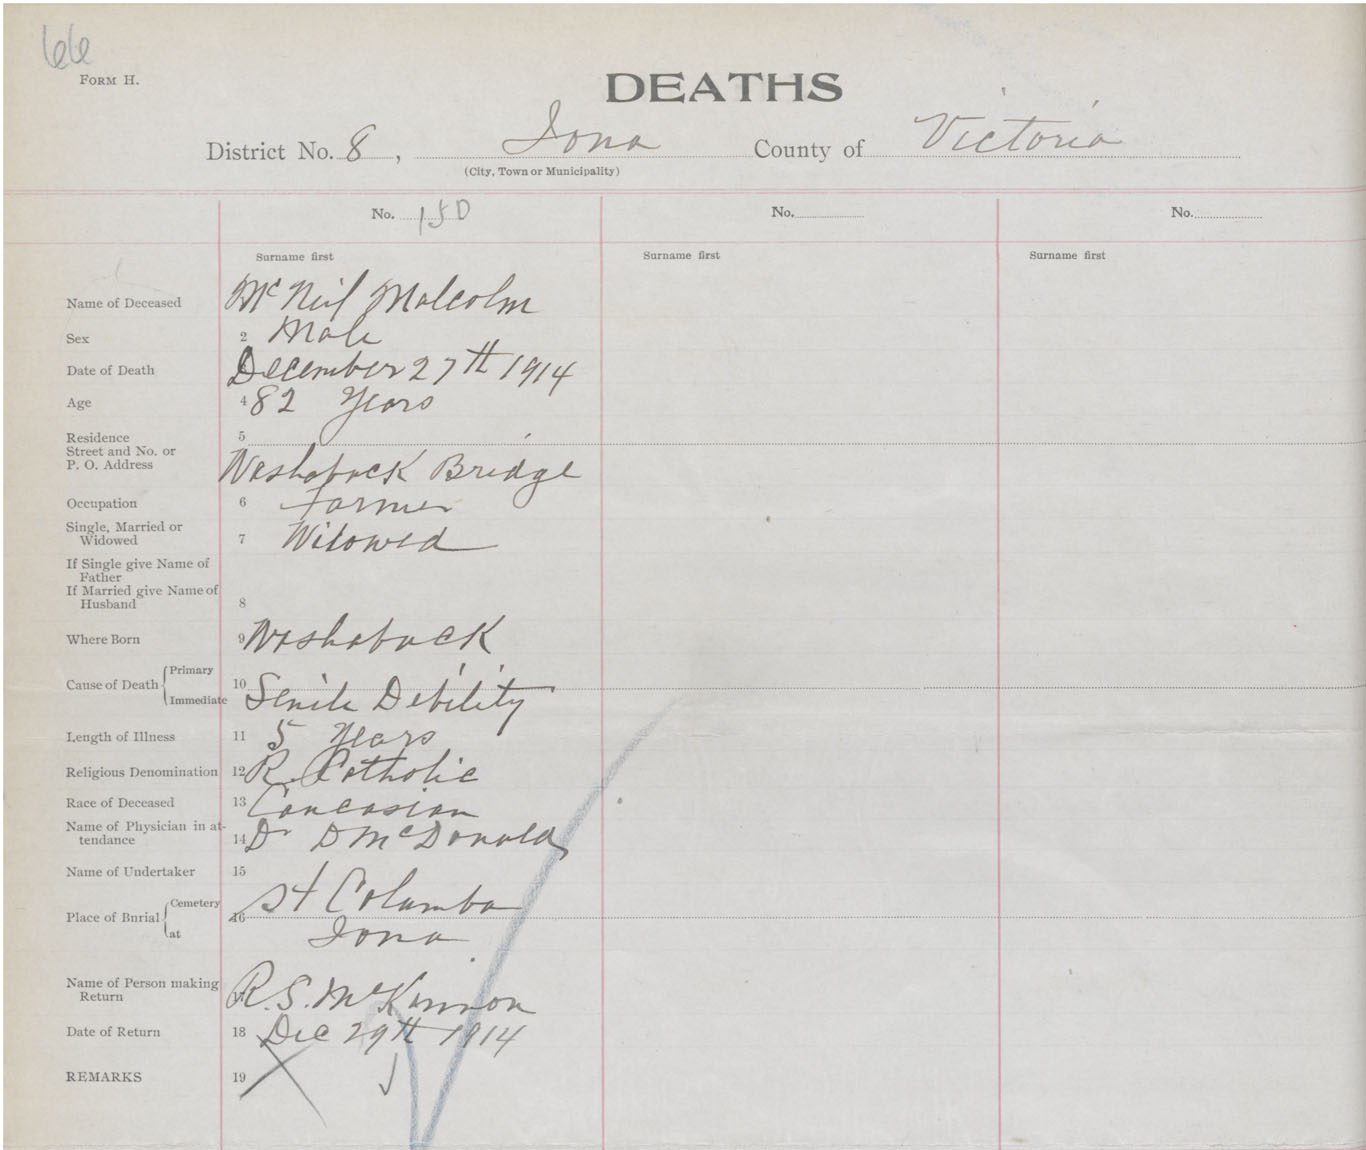 66
FORM H.
DEATHS
District No. 8, Iona County of Victoria
(City, Town or Municipality)
No. 150 No. No.
Surname first Surname first Surname first
Name of Deceased McNeil Malcolm
Sex 2 Male
Date of Death December 27th 1914
Age 4 82 Years
Residence 5
Street and No. or
P. O. Address Washaback Bridge
Occupation 6 Farmer
Single, Married or
Widowed 7 Witowed
If Single give Name of
Father
If Married give Name of
Husband 8
Where Born 9 Washaback
Primary
Cause of Death 10 Senile Debility
Immediate
Length of Illness 11 5 Years
Religious Denomination 12 R. Catholic
Race of Deceased 13 Caucasian
Name of Physician in at-
tendance 14 Dr D McDonald
Name of Undertaker 15
Cemetery St Columba
Place of Burial 16
at Iona
Name of Person making
Return 17 R. S. McKinnon
Date of Return 18 Dec 29th 1914
REMARKS 19